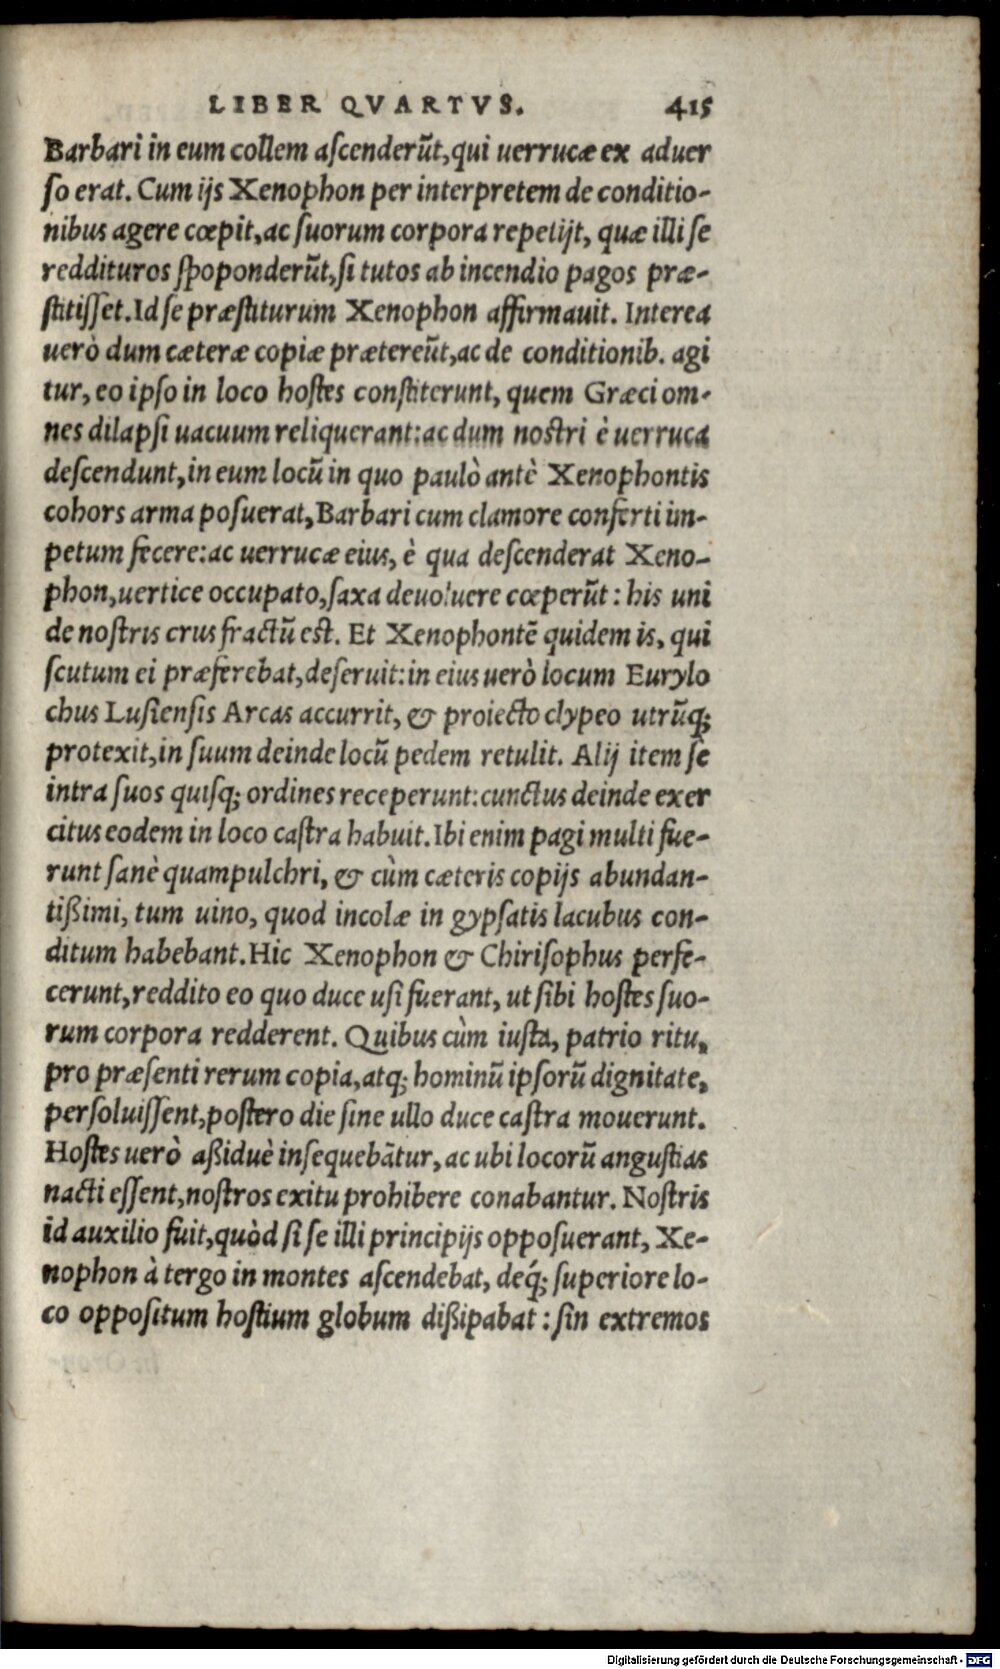 LIBER QVARTVS. 415
Barbari in eum collem aſcenderūt, qui uerrucæ ex aduer
ſo erat. Cum ijs Xenophon per interpretem de conditio-
nibus agere cœpit, ac ſuorum corpora repetijt, quæ illi ſe
reddituros ſpoponderūt, ſi tutos ab incendio pagos præ-
ſtitiſſet. Id ſe præſtiturum Xenophon affirmauit. Interea
uerò dum cæteræ copiæ prætereūt, ac de conditionib. agi
tur, eo ipſo in loco hoſtes conſtiterunt, quem Græci om-
nes dilapſi uacuum reliquerant: ac dum noſtri è uerruca
deſcendunt, in eum locū in quo paulò antè Xenophontis
cohors arma poſuerat, Barbari cum clamore conferti im-
petum fecere: ac uerrucæ eius, è qua deſcenderat Xeno-
phon, uertice occupato, ſaxa deuoluere cœperūt: his uni
de noſtris crus fractū eſt. Et Xenophontē quidem is, qui
ſcutum ei præferebat, deſeruit: in eius uerò locum Eurylo
chus Luſienſis Arcas accurrit, & proiecto clypeo utrūq;
protexit, in ſuum deinde locū pedem retulit. Alij item ſe
intra ſuos quiſq; ordines receperunt: cunctus deinde exer
citus eodem in loco caſtra habuit. Ibi enim pagi multi fue-
runt ſanè quampulchri, & cùm cæteris copijs abundan-
tißimi, tum uino, quod incolæ in gypſatis lacubus con-
ditum habebant. Hic Xenophon & Chiriſophus perfe-
cerunt, reddito eo quo duce uſi fuerant, ut ſibi hoſtes ſuo-
rum corpora redderent. Quibus cùm iuſta, patrio ritu,
pro præſenti rerum copia, atq; hominū ipſorū dignitate,
perſoluiſſent, poſtero die ſine ullo duce caſtra mouerunt.
Hoſtes uerò aßiduè inſequebātur, ac ubi locorū anguſtias
nacti eſſent, noſtros exitu prohibere conabantur. Noſtris
id auxilio fuit, quòd ſi ſe illi principijs oppoſuerant, Xe-
nophon à tergo in montes aſcendebat, deq́; ſuperiore lo-
co oppoſitum hoſtium globum dißipabat: ſin extremos
Digitalisierung gefördert durch die Deutsche Forschungsgemeinschaft - DFG